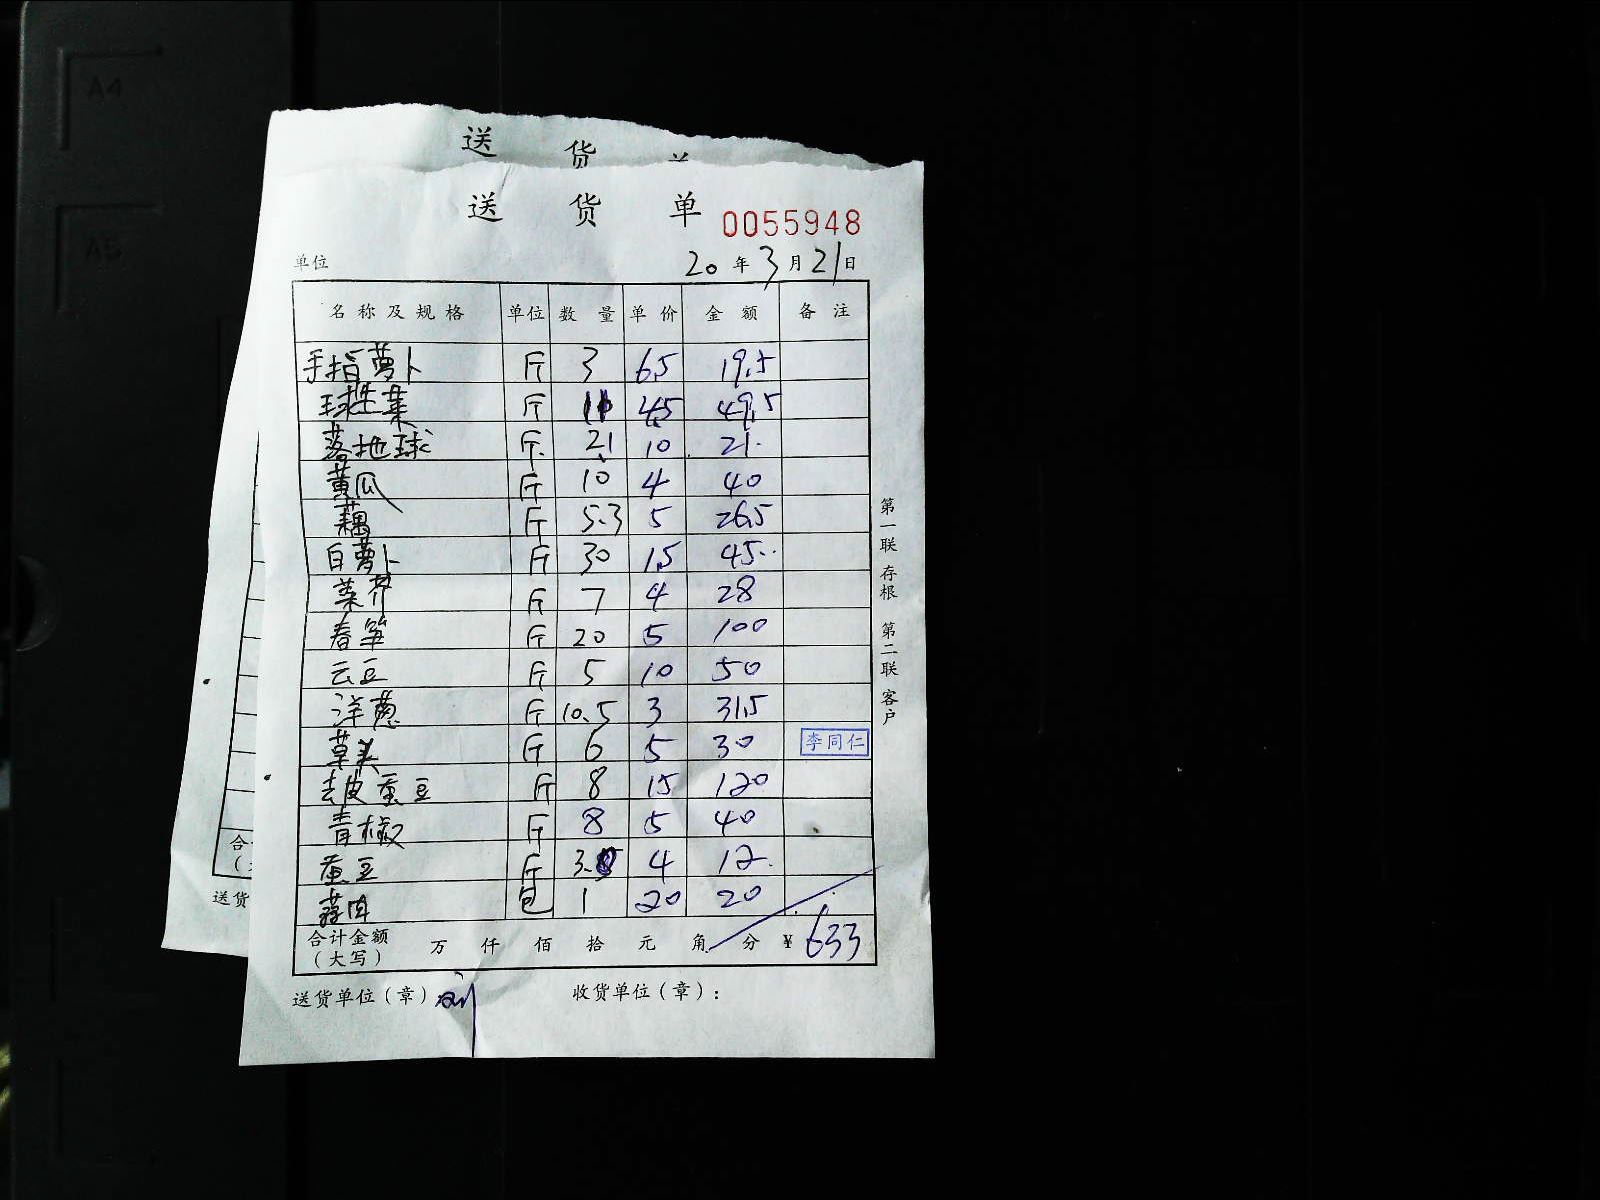 A4
A5
送 货 单
送 货 单
0055948
单位 20 年 3 月 21 日
名称及规格 单位 数量 单价 金额 备注
手指萝卜 斤 3 6.5 19.5
球生菜 斤 11 4.5 49.5
落地球 斤 2.1 10 21.
黄瓜 斤 10 4 40
藕 斤 5.3 5 26.5
白萝卜 斤 30 1.5 45..
菜芥 斤 7 4 28
春笋 斤 20 5 100
云豆 斤 5 10 50
洋葱 斤 10.5 3 31.5
草关 斤 6 5 30 李同仁
去皮蚕豆 斤 8 15 120
青椒 斤 8 5 40
蚕豆 斤 3. 4 12.
包 1 20 20
合计金额（大写） 万 仟 佰 拾 元 角 分 ¥ 633
送货单位（章） 收货单位（章）：
第一联 存根 第二联 客户
合
送货